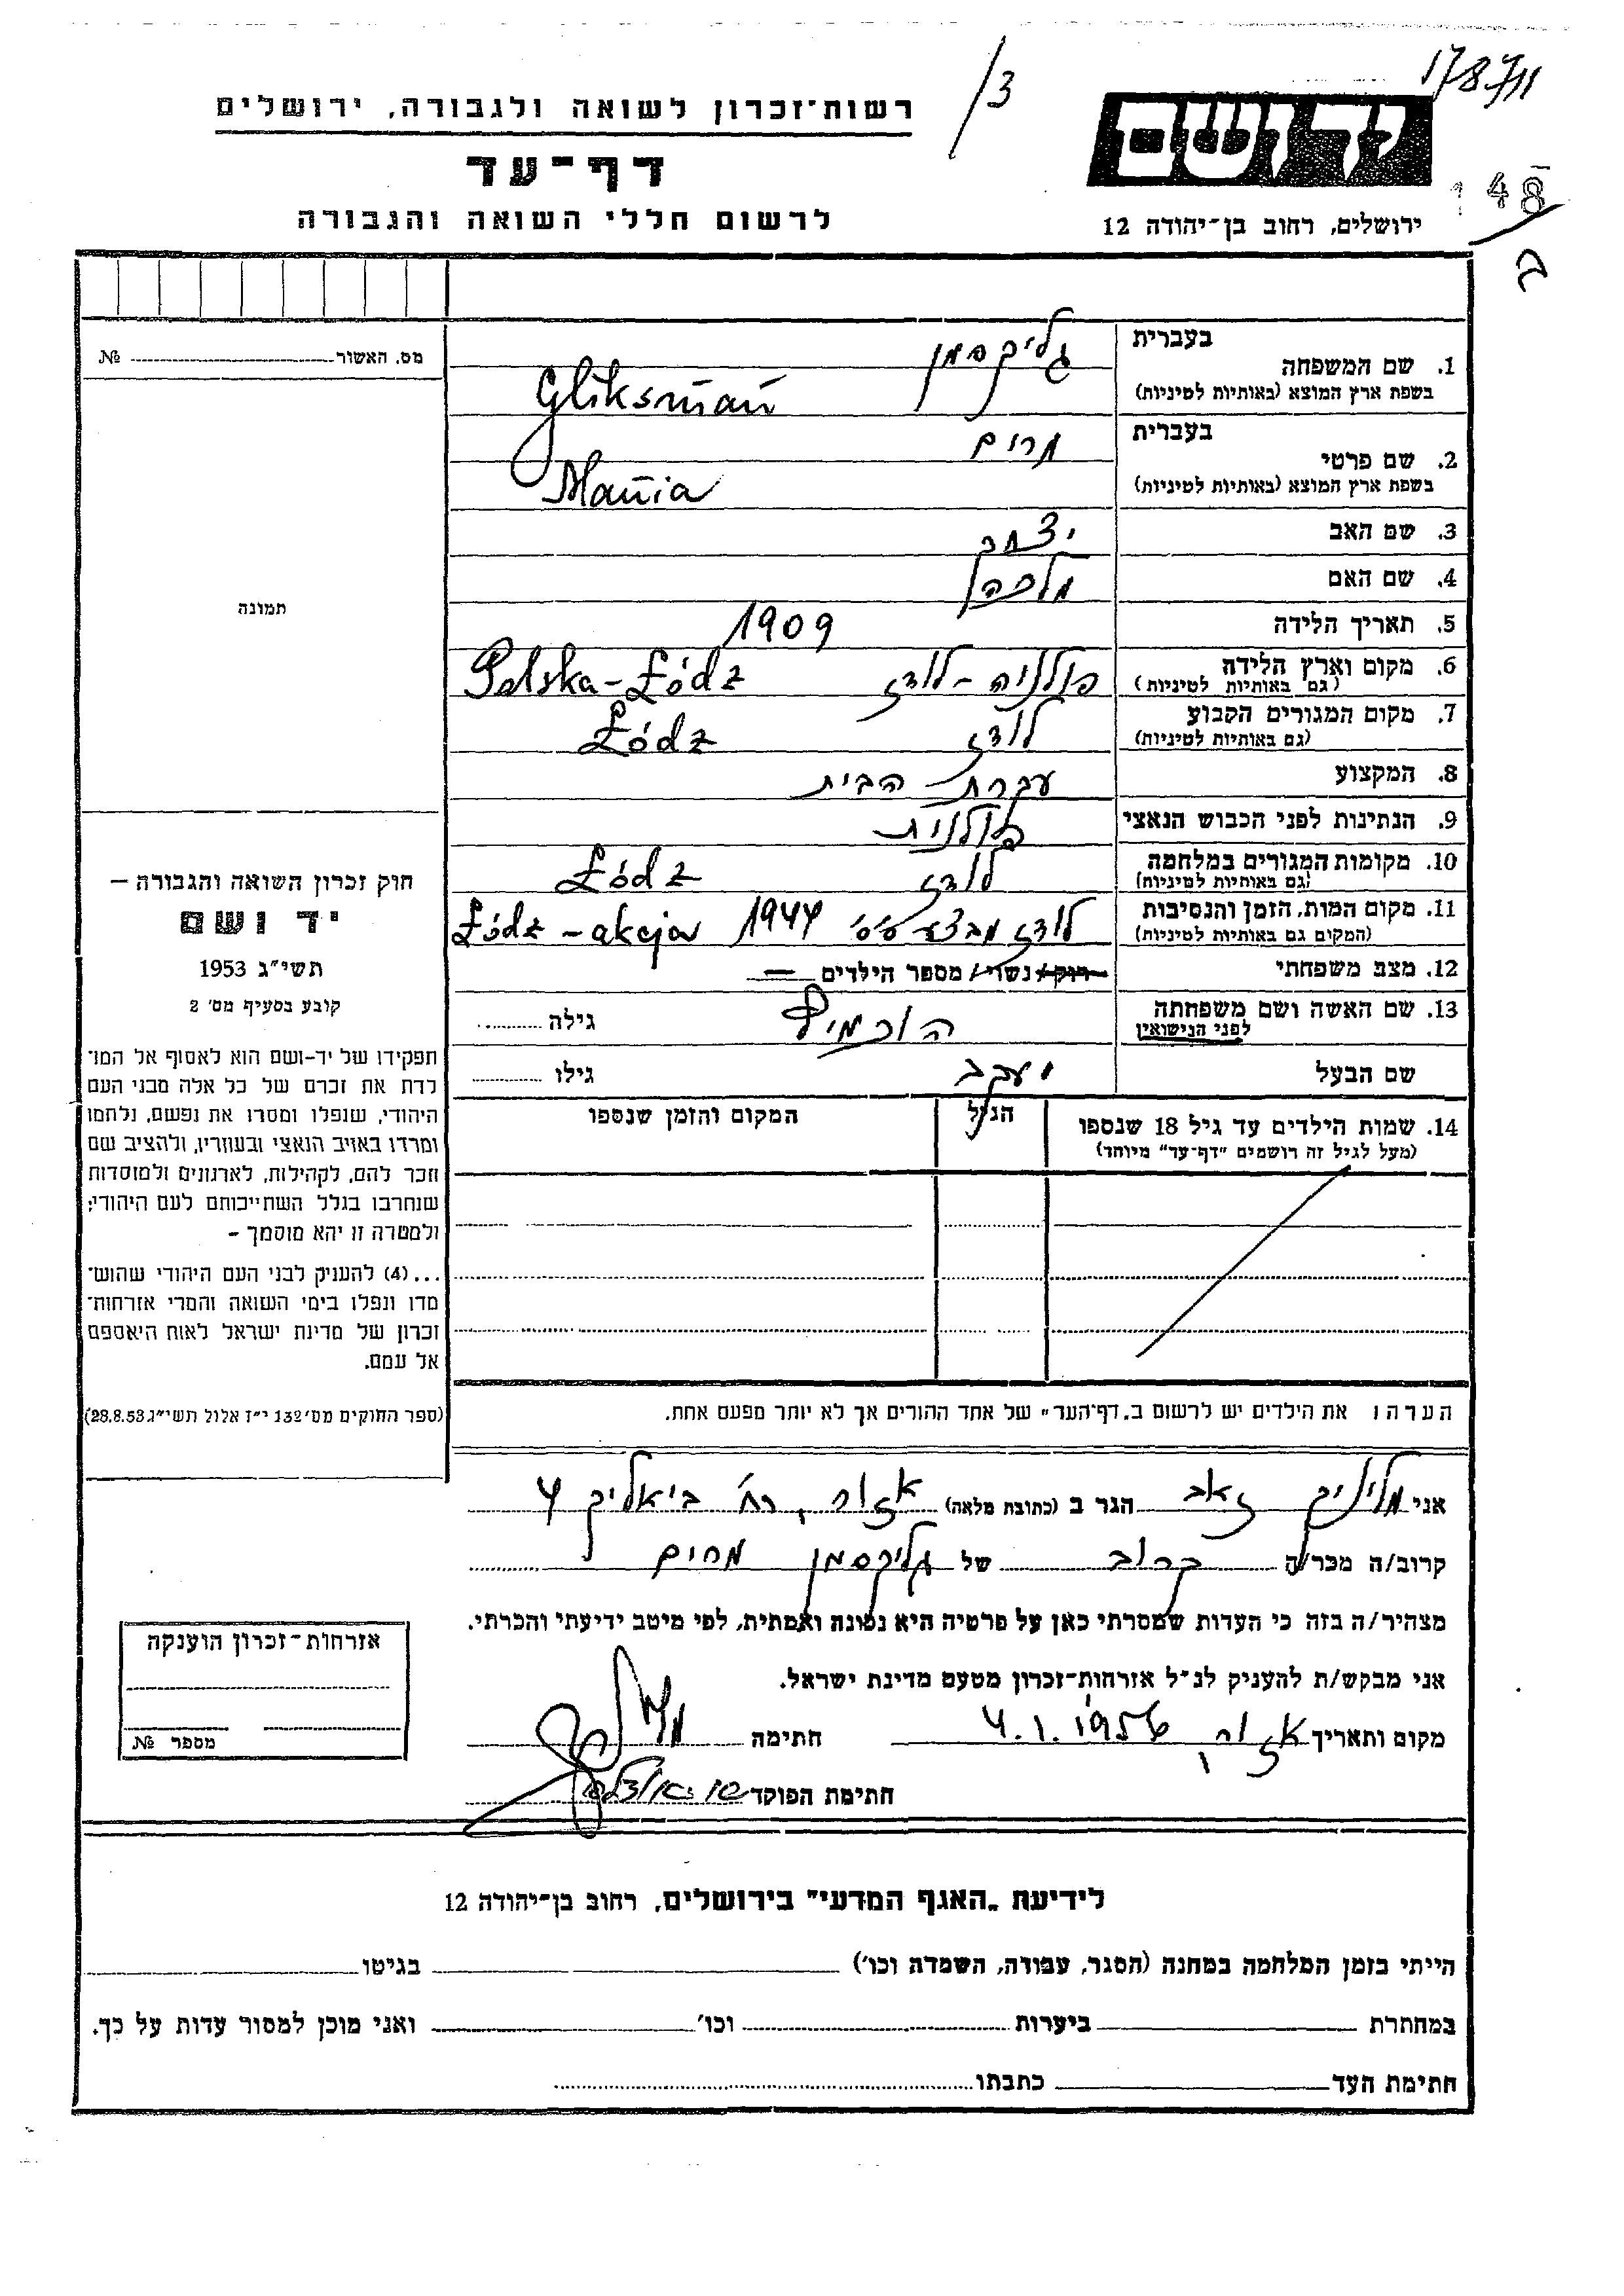 178711
/3
רשות־זכרון לשואה ולגבורה, ירושלים
ידושם
148
דף־עד
לרשום חללי השואה והגבורה
ירושלים, רחוב בן־יהודה 12
ב
מס. האשור № 
תמונה
1. שם המשפחה בעברית גליקסמן
בשפת ארץ המוצא (באותיות לטיניות) Gliksman
2. שם פרטי בעברית מרים
בשפת ארץ המוצא (באותיות לטיניות) Mania
3. שם האב יצחק
4. שם האם מלכה
5. תאריך הלידה 1909
6. מקום וארץ הלידה (גם באותיות לטיניות) פולניה - לודז Polska - Łódz
7. מקום המגורים הקבוע (גם באותיות לטיניות) לודז Łódz
8. המקצוע עקרת הבית
9. הנתינות לפני הכבוש הנאצי פולנית
10. מקומות המגורים במלחמה (גם באותיות לטיניות) לודז Łódz
11. מקום המות, הזמן והנסיבות (המקום גם באותיות לטיניות) לודז מבצע 1944 Łódz - akcja
12. מצב משפחתי רוק/ נשוי/ מספר הילדים —
13. שם האשה ושם משפחתה לפני הנישואין גילה
שם הבעל יעקב גילו
14. שמות הילדים עד גיל 18 שנספו הגיל המקום והזמן שנספו
(מעל לגיל זה רושמים "דף־עד" מיוחד)
הערה: את הילדים יש לרשום ב„דף־העד" של אחד ההורים אך לא יותר מפעם אחת.
חוק זכרון השואה והגבורה —
יד ושם
תשי"ג 1953
קובע בסעיף מס' 2
תפקידו של יד-ושם הוא לאסוף אל המו־
לדת את זכרם של כל אלה מבני העם
היהודי, שנפלו ומסרו את נפשם, נלחמו
ומרדו באויב הנאצי ובעוזריו, ולהציב שם
וזכר להם, לקהילות, לארגונים ולמוסדות
שנחרבו בגלל השתייכותם לעם היהודי;
ולמטרה זו יהא מוסמך -
...(4) להעניק לבני העם היהודי שהוש־
מדו ונפלו בימי השואה והמרי אזרחות־
זכרון של מדינת ישראל לאות היאספם
אל עמם.
(ספר החוקים מס' 132 י"ז אלול תשי"ג 28.8.53)
אני זאב הגר ב (כתובת מלאה) אזור, רח' ביאליק 4
קרוב/ה מכר/ה קרוב של גליקסמן מרים
מצהיר/ה בזה כי העדות שמסרתי כאן על פרטיה היא נכונה ואמתית, לפי מיטב ידיעתי והכרתי.
אני מבקש/ת להעניק לנ"ל אזרחות־זכרון מטעם מדינת ישראל.
מקום ותאריך אזור, 4.1.1956 חתימה
חתימת הפוקד
אזרחות־זכרון הוענקה
מספר №
לידיעת „האגף המדעי" בירושלים, רחוב בן־יהודה 12
הייתי בזמן המלחמה במחנה (הסגר, עבודה, השמדה וכו') בגיטו
במחתרת ביערות וכו' ואני מוכן למסור עדות על כך.
חתימת העד כתבתו